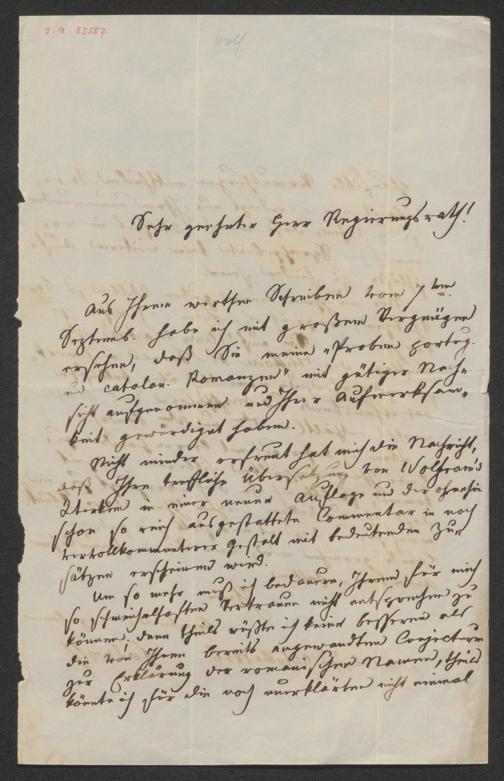 J. N. 85587
Wolf
Sehr geehrter Herr Regierungsrath!
Aus Ihrem werthen Schreiben vom 7ten
Septemb. habe ich mit großem Vergnügen
ersehen, daß Sie meine „Proben portug.
u. catalan. Romanzen" mit gütiger Nach-
sicht aufgenommen und Ihrer Aufmerksam-
keit gewürdiget haben.
Nicht minder erfreut hat mich die Nachricht,
daß Ihre treffliche Übersetzung von Wolfram's
Werken in einer neuen Auflage und der ohnehin
schon so reich ausgestattete Commentar in noch
vervollkommneterer Gestalt mit bedeutenden Zu-
sätzen erscheinen wird.
Um so mehr muß ich bedauern, Ihrem für mich
so schmeichelhaften Vertrauen nicht entsprechen zu
können. Denn theils wüßte ich keine besseren als
die von Ihnen bereits angewandten Conjecturen
zur Erklärung der romanischen Namen, theils
könnte ich für die noch unerklärten nicht einmal